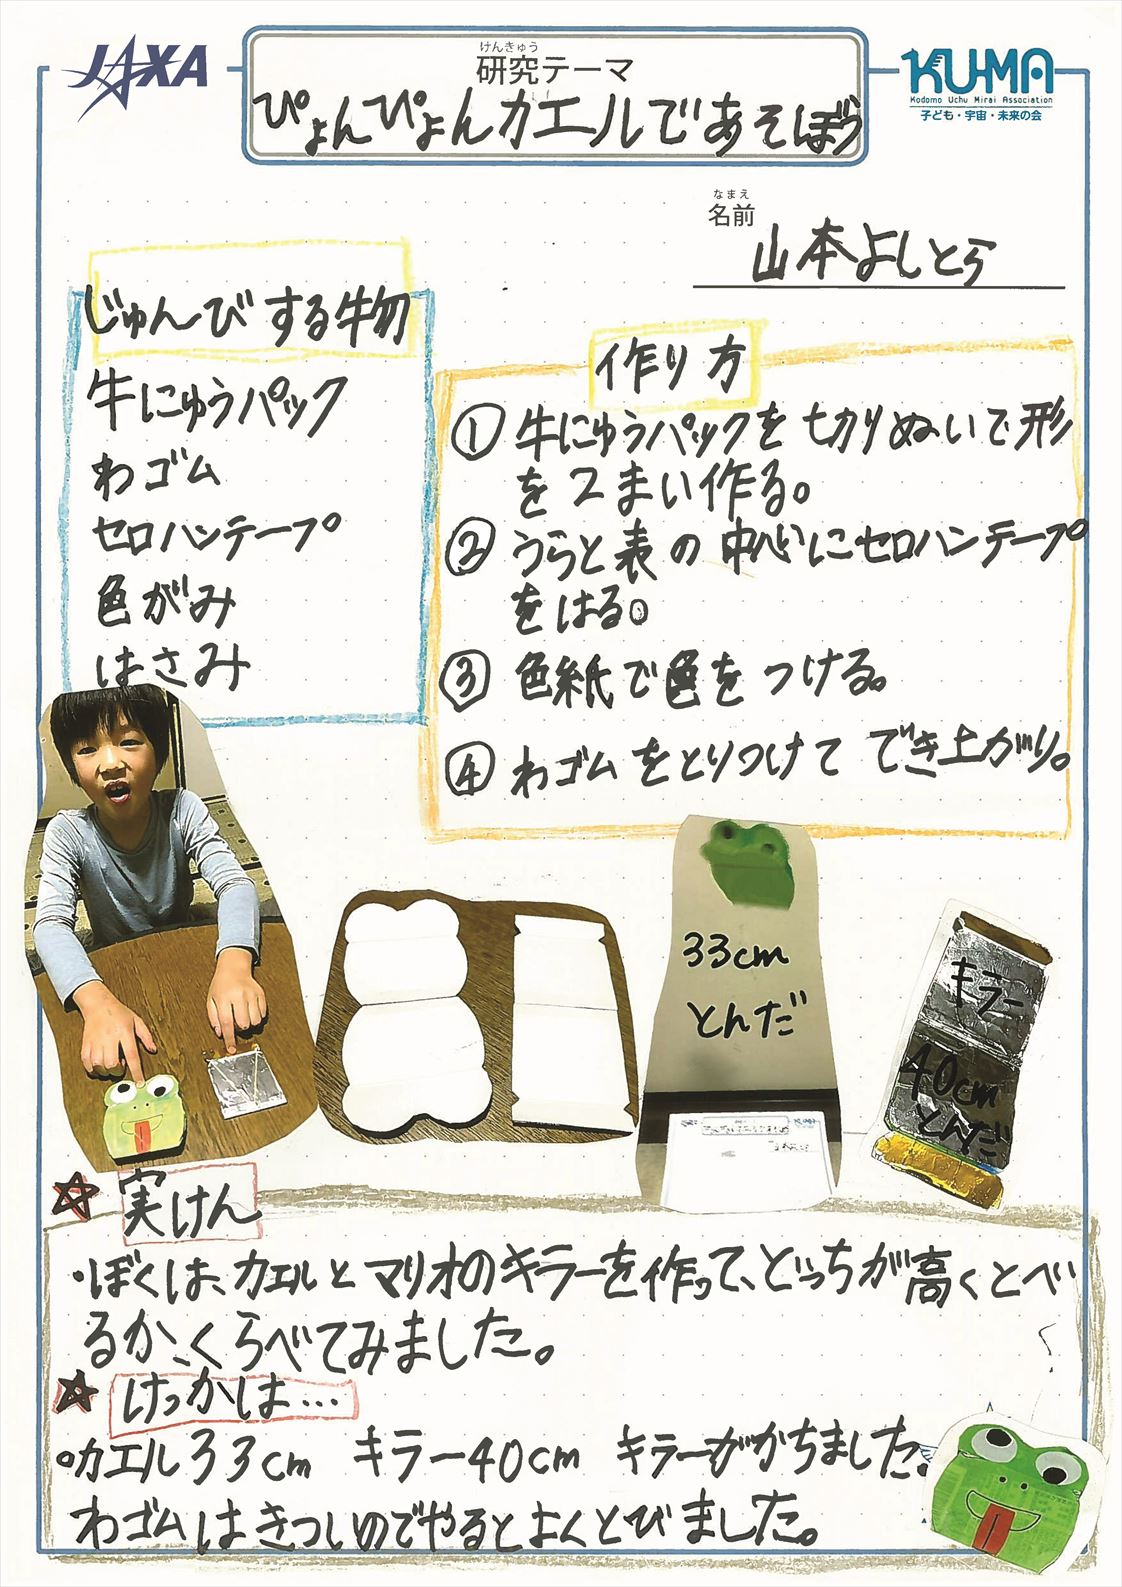 JAXA
けんきゅう
研究テーマ
ぴょんぴょんカエルであそぼう
KU-MA
Kodomo Uchu Mirai Association
子ども・宇宙・未来の会
なまえ
名前
山本よしとら
じゅんびする物
牛にゅうパック
わゴム
セロハンテープ
色がみ
はさみ
作り方
① 牛にゅうパックを切りぬいで形
を2まい作る。
② うらと表の中心にセロハンテープ
をはる。
③ 色紙で色をつける。
④ わゴムをとりつけてでき上がり。
33cm
とんだ
キラー
40cm
とんだ
☆実けん
・ぼくは、カエルとマリオのキラーを作って、どっちが高くとべ
るか、くらべてみました。
☆けっかは…
・カエル33cm キラー40cm キラーがかちました。
わゴムはきついのでやるとよくとびました。